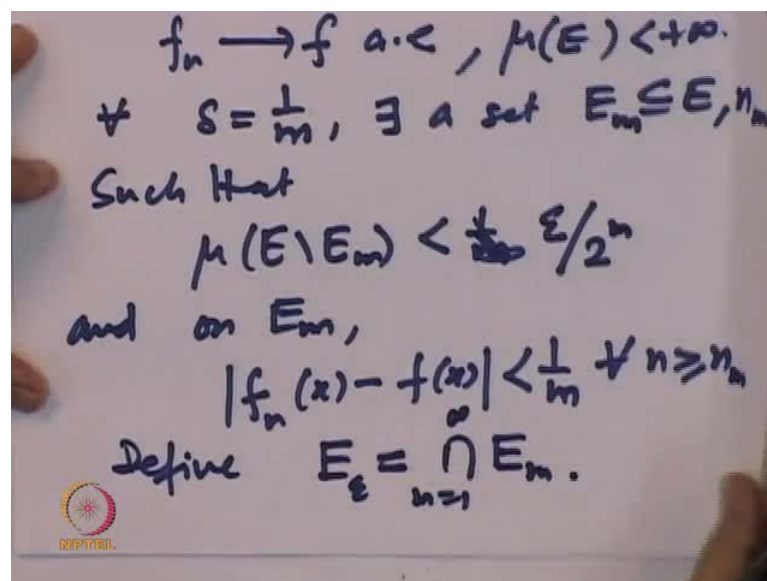 fₙ → f a.e , μ(E) < +∞.
∀ δ = 1/m, ∃ a set Eₘ ⊆ E, nₘ
Such that
μ(E \ Eₘ) < ε/2ᵐ
and on Eₘ,
|fₙ(x) - f(x)| < 1/m ∀ n ≥ nₘ
Define E_ε = ∩_{m=1}^∞ Eₘ.
NPTEL